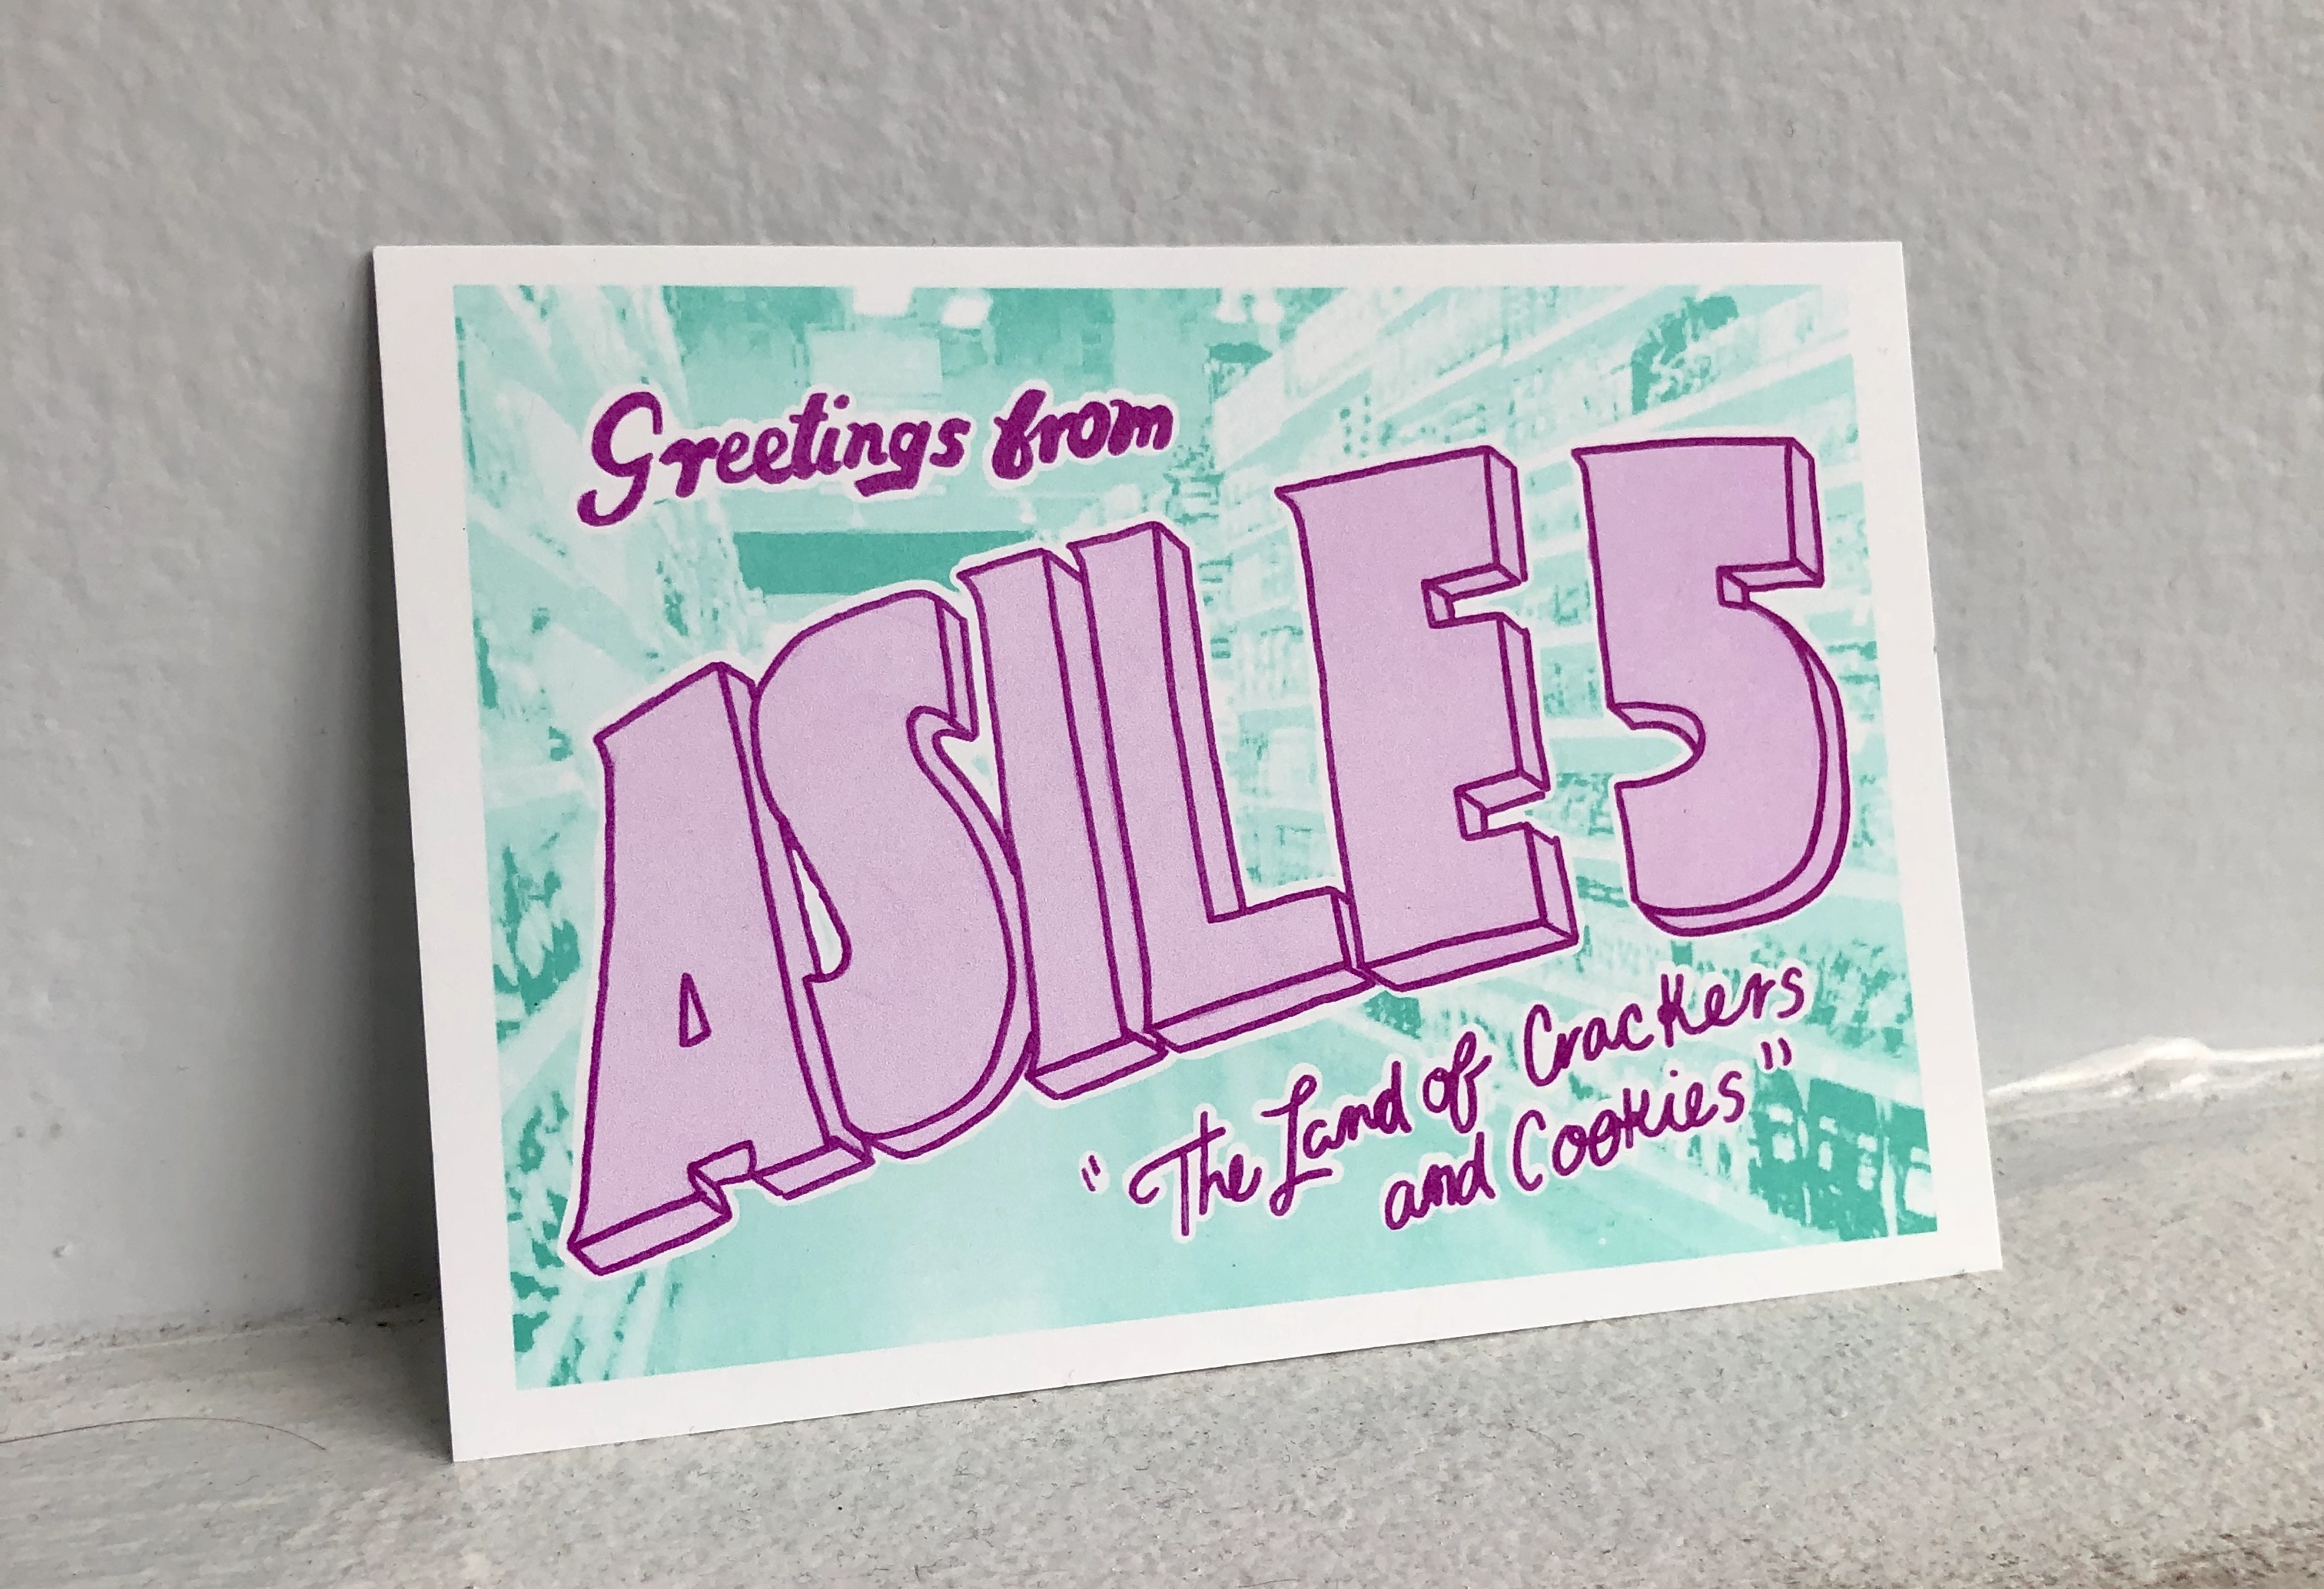 Greetings from
ASILE 5
"The Land of Crackers
and Cookies"